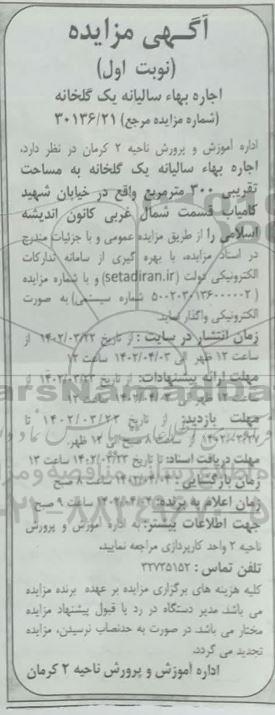 آگهی مزایده
(نوبت اول)
اجاره بهاء سالیانه یک گلخانه
(شماره مزایده مرجع) ۳۰۱۳۶/۲۱
اداره آموزش و پرورش ناحیه ۲ کرمان در نظر دارد،
اجاره بهاء سالیانه یک گلخانه به مساحت
تقریبی ۳۰۰ مترمربع واقع در خیابان شهید
کامیاب قسمت شمال غربی کانون اندیشه
اسلامی را از طریق مزایده عمومی و با جزئیات مندرج
در اسناد مزایده، با بهره گیری از سامانه تدارکات
الکترونیکی دولت (setadiran.ir) و با شماره مزایده
(۵۰۰۲۰۳۰۱۳۶۰۰۰۰۰۲ شماره سیستمی) به صورت
الکترونیکی واگذار نماید.
زمان انتشار در سایت: از تاریخ ۱۴۰۲/۰۳/۲۲ از
ساعت ۱۲ ظهر الی ۱۴۰۲/۰۴/۰۳ ساعت ۱۲
مهلت ارائه پیشنهادات: از تاریخ
مهلت بازدید: از تاریخ ۱۴۰۲/۰۳/۲۳ تا
ساعت ۸ صبح الی ۱۲ ظهر
مهلت دریافت اسناد: تا تاریخ ساعت ۱۳
زمان بازگشایی: ساعت ۸ صبح
زمان اعلام به برنده: ساعت ۹ صبح
جهت اطلاعات بیشتر: به اداره آموزش و پرورش
ناحیه ۲ واحد کارپردازی مراجعه نمایید.
تلفن تماس: ۳۲۷۳۵۱۵۲
کلیه هزینه های برگزاری مزایده بر عهده برنده مزایده
می باشد. مدیر دستگاه در رد یا قبول پیشنهاد مزایده
مختار می باشد. در صورت به حدنصاب نرسیدن، مزایده
تجدید می گردد.
اداره آموزش و پرورش ناحیه ۲ کرمان